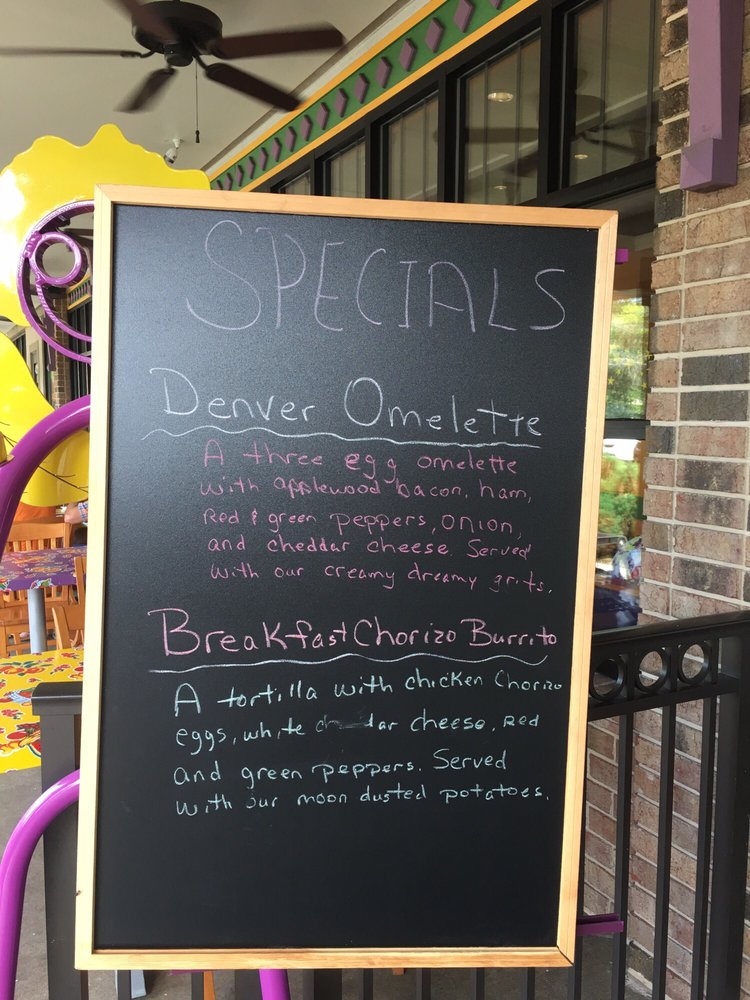 SPECIALS
Denver Omelette
A three egg omelette
with applewood bacon, ham,
Red & green peppers, onion,
and cheddar cheese. Served
with our creamy dreamy grits.
Breakfast Chorizo Burrito
A tortilla with chicken Chorizo
eggs, white cheese, Red
and green peppers. Served
with our moon dusted potatoes.